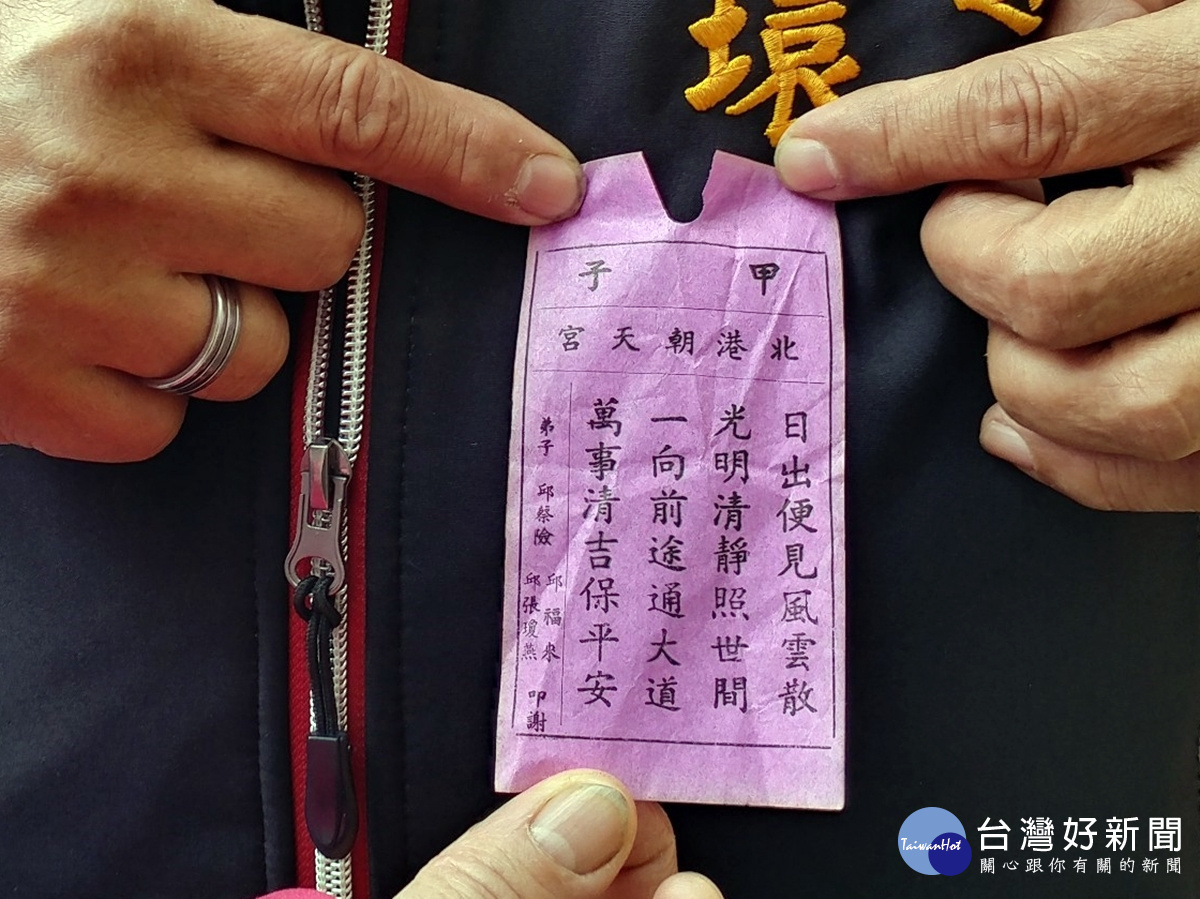 環
甲子
北港朝天宮
日出便見風雲散
光明清靜照世間
一向前途通大道
萬事清吉保平安
弟子 邱蔡險 邱福來
邱張瓊燕 叩謝
TaiwanHot
台灣好新聞
關心跟你有關的新聞